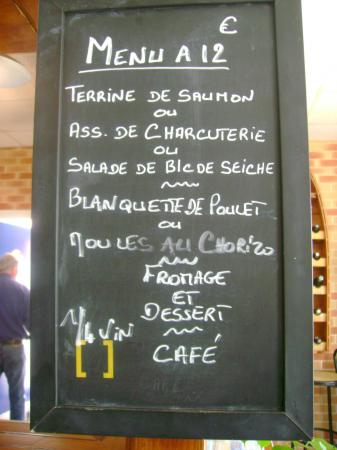 €
MENU A 12
TERRINE DE SAUMON
OU
ASS. DE CHARCUTERIE
OU
SALADE DE BLC DE SEICHE
BLANQUETTE DE POULET
OU
MOULES AU CHORIZO
FROMAGE
ET
DESSERT
1/4 VIN
[ ] CAFÉ
CAFÉ